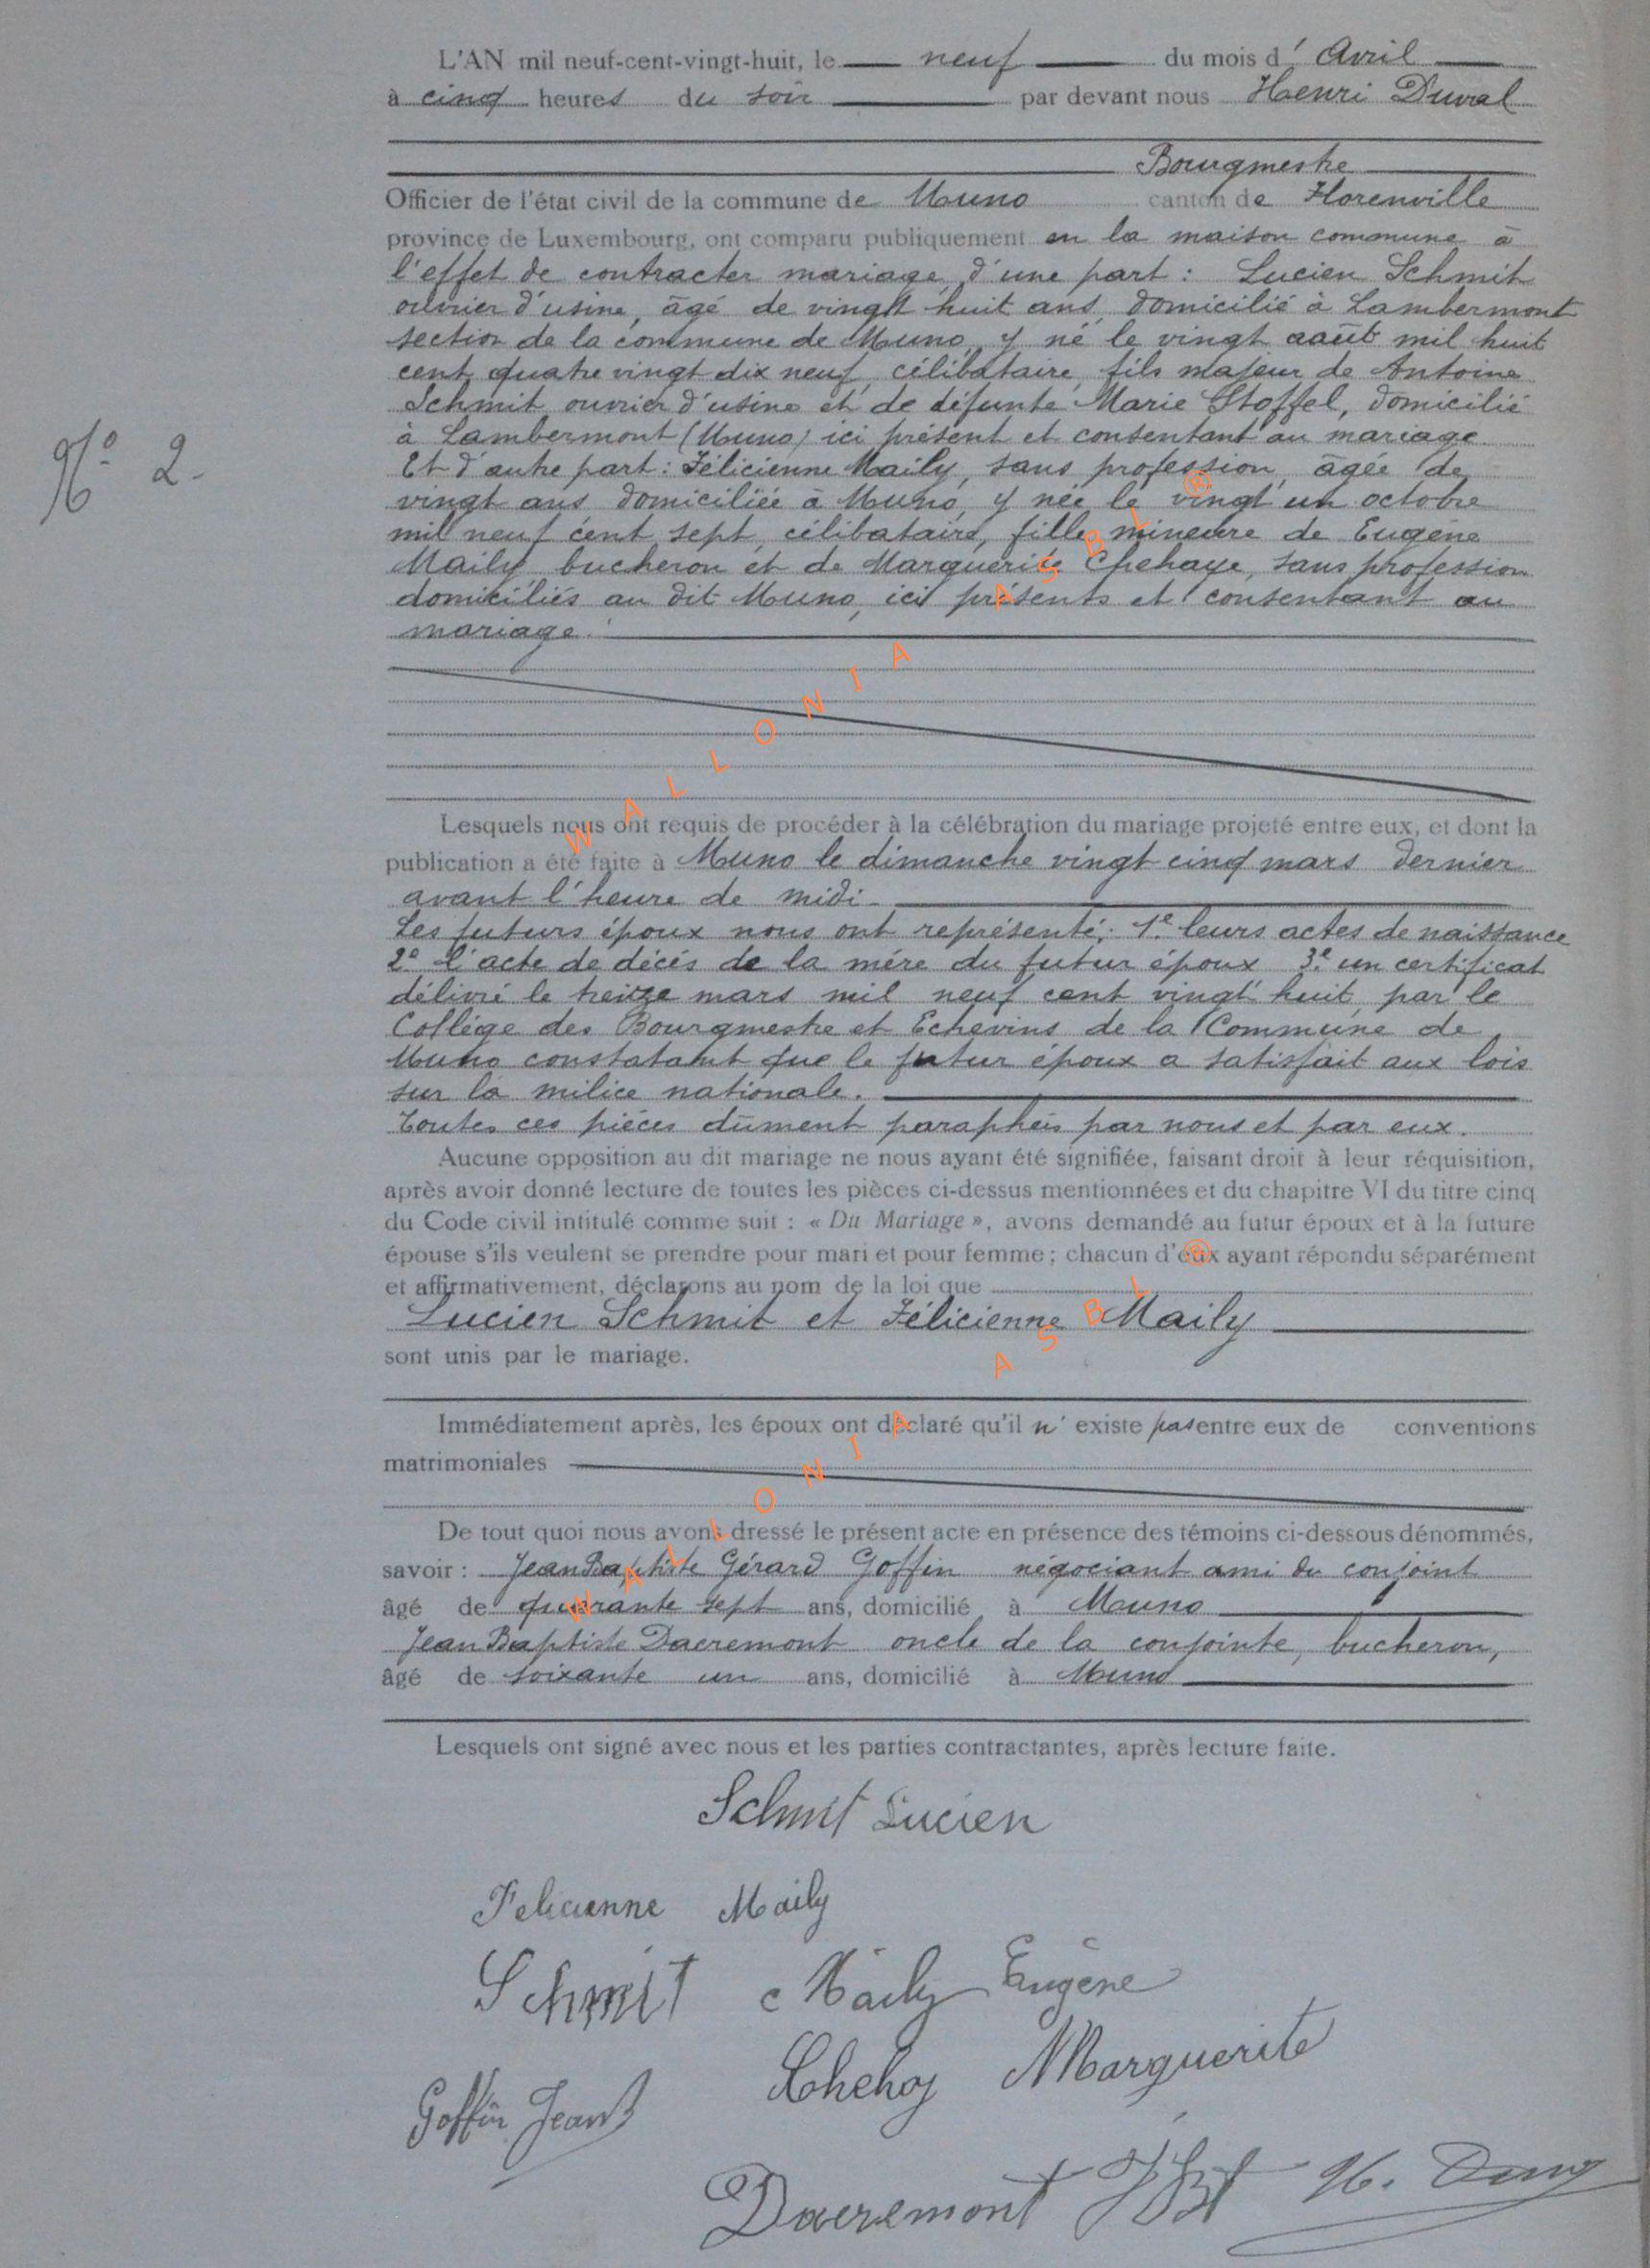 L'AN mil neuf-cent-vingt-huit, le neuf du mois d' Avril
à cinq heures du soir par devant nous Henri Duval
Bourgmestre
Officier de l'état civil de la commune de Muno canton de Florenville
province de Luxembourg, ont comparu publiquement en la maison commune à
l'effet de contracter mariage, d'une part : Lucien Schmit
ouvrier d'usine, âgé de vingt huit ans, domicilié à Lambermont
section de la commune de Muno, y né le vingt août mil huit
cent quatre vingt dix neuf, célibataire, fils majeur de Antoine
Schmit, ouvrier d'usine et de défunte Marie Stoffel, domicilié
à Lambermont (Muno) ici présent et consentant au mariage
Et d'autre part : Félicienne Maily, sans profession, âgée de
vingt ans domiciliée à Muno, y née le vingt un octobre
mil neuf cent sept, célibataire, fille mineure de Eugène
Maily, bucheron et de Marguerite Chehaye, sans profession
domiciliés au dit Muno, ici présents et consentant au
mariage.
Lesquels nous ont requis de procéder à la célébration du mariage projeté entre eux, et dont la
publication a été faite à Muno le dimanche vingt cinq mars dernier
avant l'heure de midi
Les futurs époux nous ont représenté : 1° leurs actes de naissance
2° l'acte de décès de la mère du futur époux 3° un certificat
délivré le treize mars mil neuf cent vingt huit, par le
Collège des Bourgmestre et Echevins de la Commune de
Muno constatant que le futur époux a satisfait aux lois
sur la milice nationale.
Toutes ces pièces dûment paraphées par nous et par eux.
Aucune opposition au dit mariage ne nous ayant été signifiée, faisant droit à leur réquisition,
après avoir donné lecture de toutes les pièces ci-dessus mentionnées et du chapitre VI du titre cinq
du Code civil intitulé comme suit : « Du Mariage », avons demandé au futur époux et à la future
épouse s'ils veulent se prendre pour mari et pour femme ; chacun d'eux ayant répondu séparément
et affirmativement, déclarons au nom de la loi que
Lucien Schmit et Félicienne Maily
sont unis par le mariage.
Immédiatement après, les époux ont déclaré qu'il n' existe pas entre eux de conventions
matrimoniales
De tout quoi nous avons dressé le présent acte en présence des témoins ci-dessous dénommés,
savoir : Jean Baptiste Gérard Goffin négociant ami du conjoint
âgé de quarante sept ans, domicilié à Muno
Jean Baptiste Dacremont oncle de la conjointe, bucheron,
âgé de soixante un ans, domicilié à Muno
Lesquels ont signé avec nous et les parties contractantes, après lecture faite.
N° 2.
Schmit Lucien
Felicienne Maily
Schmit Maily Eugène
Chehay Marguerite
Goffin Jean B
Dacremont JBt H. Duval
WALLONIA ASBL ®
WALLONIA ASBL ®